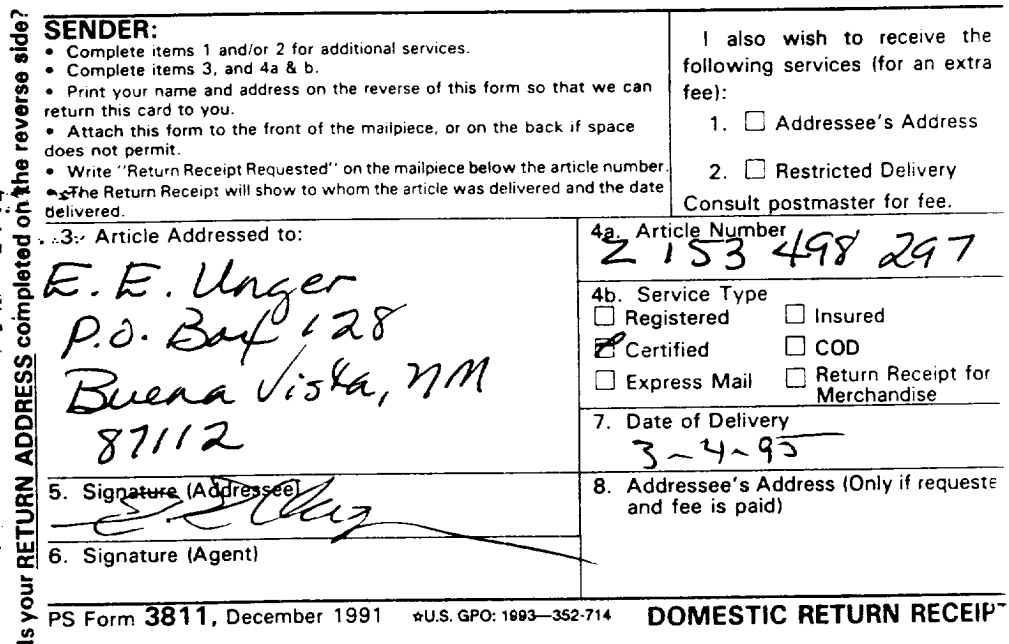 Is your RETURN ADDRESS completed on the reverse side?
SENDER:
• Complete items 1 and/or 2 for additional services.
• Complete items 3, and 4a & b.
• Print your name and address on the reverse of this form so that we can
return this card to you.
• Attach this form to the front of the mailpiece, or on the back if space
does not permit.
• Write "Return Receipt Requested" on the mailpiece below the article number.
• The Return Receipt will show to whom the article was delivered and the date
delivered.
I also wish to receive the
following services (for an extra
fee):
1. ☐ Addressee's Address
2. ☐ Restricted Delivery
Consult postmaster for fee.
3. Article Addressed to:
E. E. Unger
P.O. Box 128
Buena Vista, NM
87112
4a. Article Number
Z 153 498 297
4b. Service Type
☐ Registered ☐ Insured
☑ Certified ☐ COD
☐ Express Mail ☐ Return Receipt for
Merchandise
7. Date of Delivery
3-4-95
5. Signature (Addressee)
6. Signature (Agent)
8. Addressee's Address (Only if requeste
and fee is paid)
PS Form 3811, December 1991 ☆U.S. GPO: 1993—352-714 DOMESTIC RETURN RECEIP